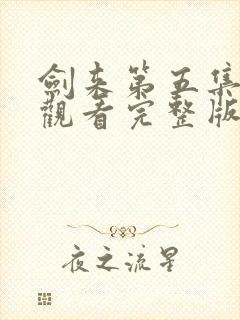 劍来第五集
觀看完整版
夜之流星